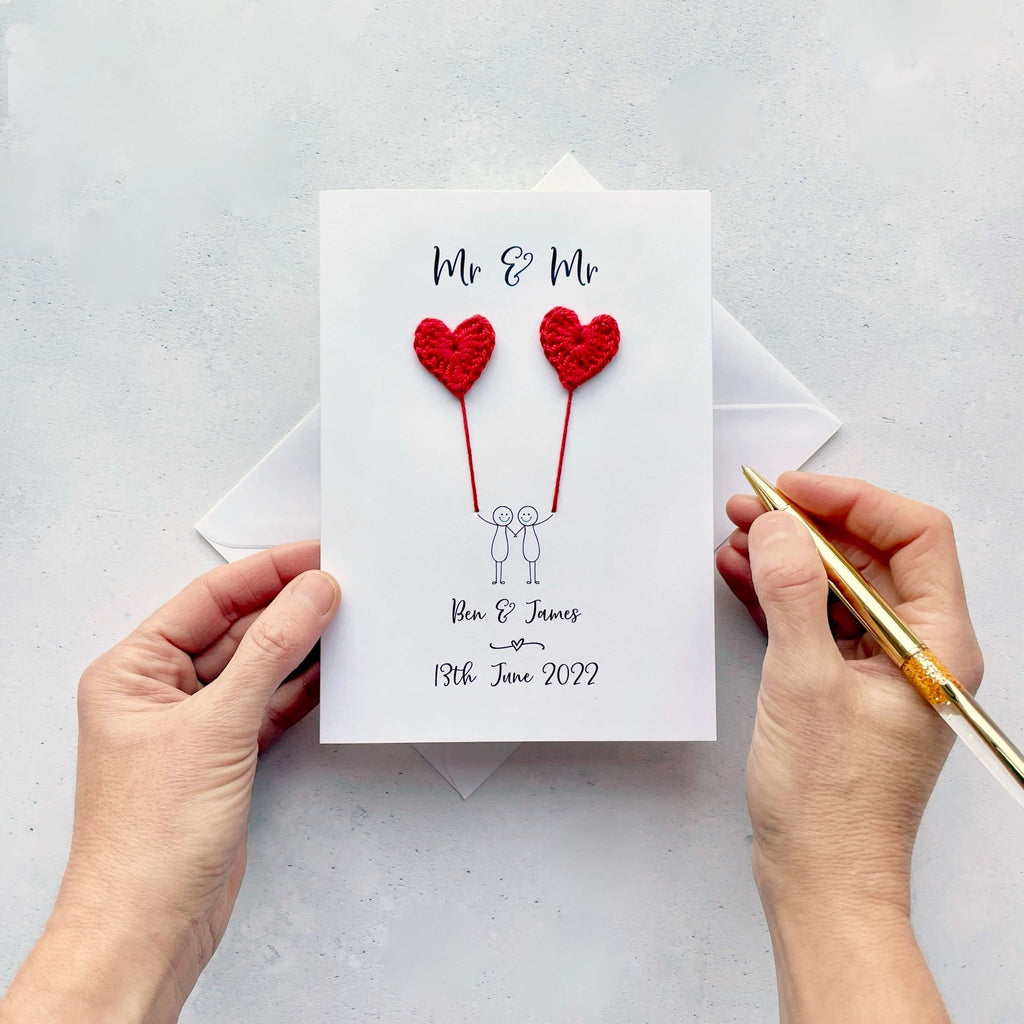 Mr & Mr
Ben & James
13th June 2022